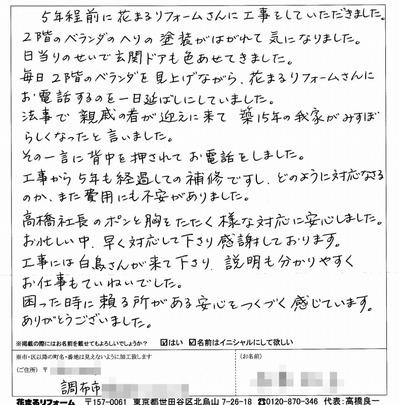 ５年程前に花まるリフォームさんに工事をしていただきました。
２階のベランダのヘリの塗装がはがれて気になりました。
日当りのせいで玄関ドアも色あせてきました。
毎日２階のベランダを見上げながら、花まるリフォームさんに
お電話するのを一日延ばしにしていました。
法事で親戚の者が迎えに来て 築15年の我家がみすぼ
らしくなったと言いました。
その一言に背中を押されてお電話をしました。
工事から５年も経過しての補修ですし、どのように対応なさる
のか、また費用にも不安がありました。
高橋社長のポンと胸をたたく様な対応に安心しました。
お忙しい中、早く対応して下さり感謝しております。
工事には白鳥さんが来て下さり、説明も分かりやすく
お仕事もていねいでした。
困った時に頼る所がある安心をつくづく感じています。
ありがとうございました。
※掲載の際にはお名前を載せてもよろしいでしょうか？ ☑はい ☑名前はイニシャルにして欲しい
※市・区以降の町名・番地は見えないように加工致します
（ご住所）〒
（お名前）
調布市
花まるリフォーム 〒157-0061 東京都世田谷区北烏山 7-26-18 0120-870-346 代表：高橋良一